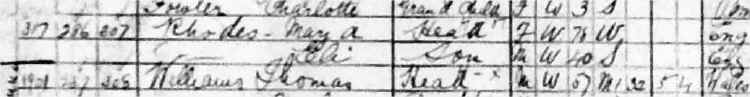 Fowler Charlotte Grand Child F W 3 S
317 286 307 Rhodes - Mary A Head F W 78 W Eng
Eli Son M W 40 S Eng
1901 Williams Thomas Head - x M W 57 M 32 Wales